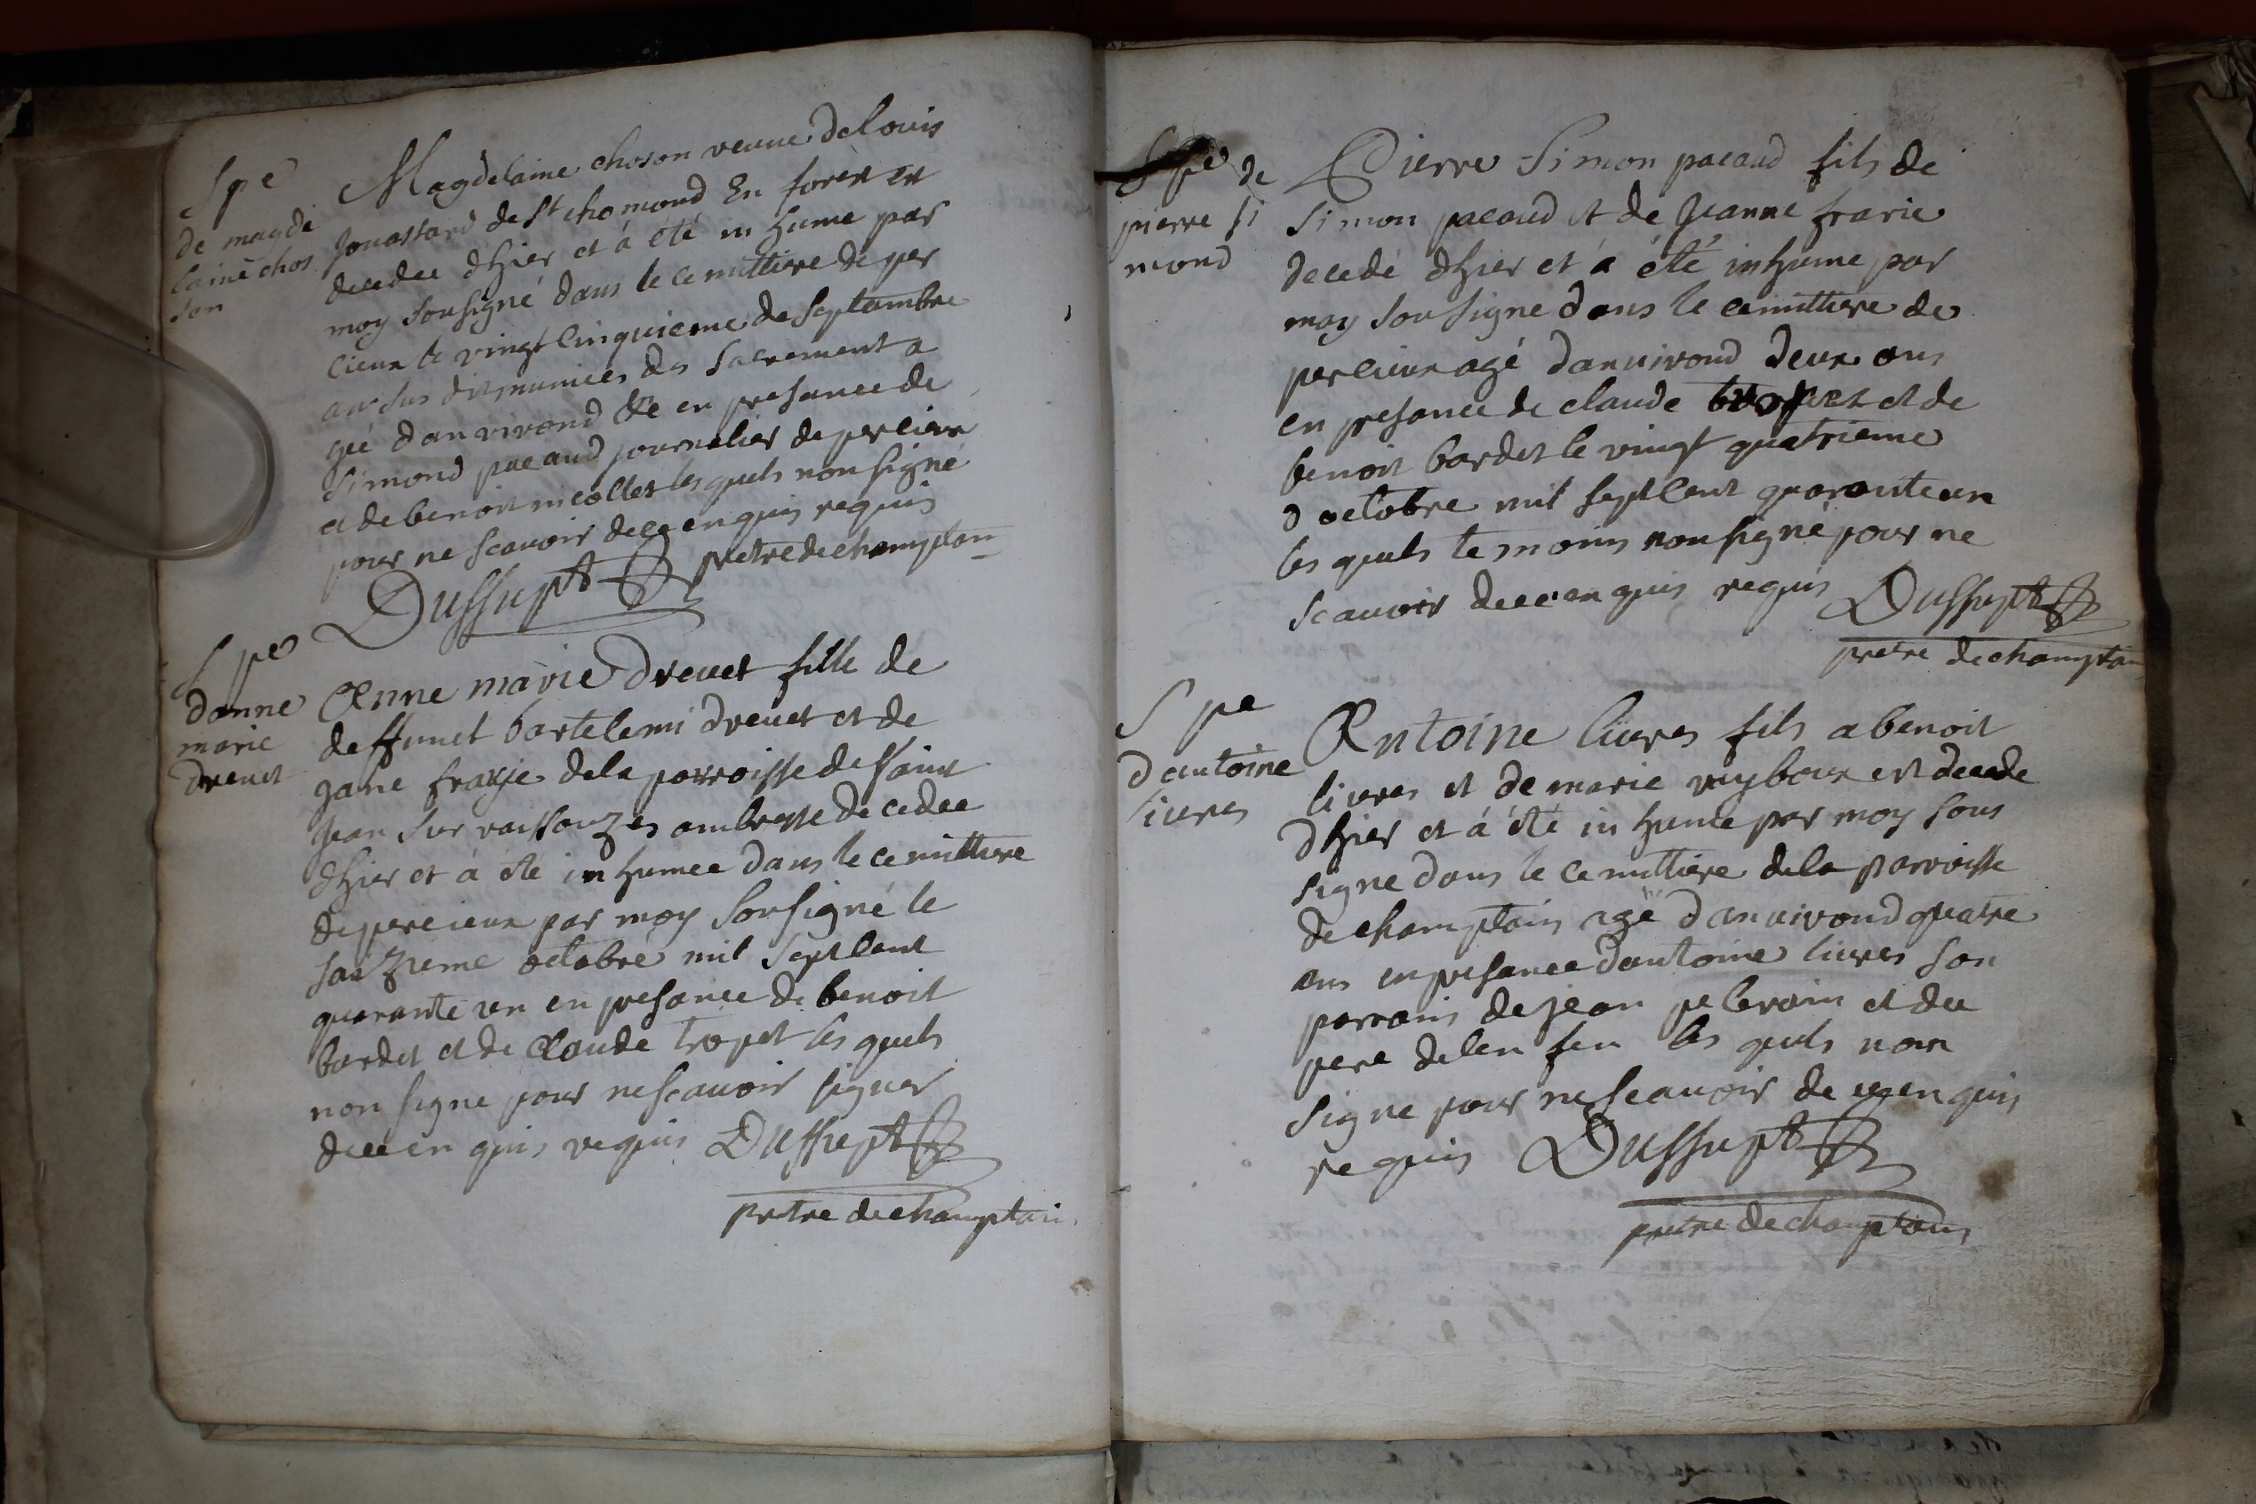 Spe
de magde
laine chos
son
Magdelaine choson veuue de louis
Jouassard de St chomond En forest est
decedee dhier et á été in humé par
moy sousigné dans le cemittiere de per
cieux le vingt cinquieme de septambre
an sus dit muniees des sacrement a
gée danvirond &e en presance de
simond pacaud journalier de percieux
et de benoit nicollet les quels non signé
pour ne scauoir de ce enquis requis
Dussupt pretre de champtain
Spe
danne
marie
dreuet
Anne marie dreuet fille de
deffunct bartelemi dreuet et de
jane fraxje dela parroisse de saint
jean sur raissouze en ambresse decedee
dhier et á été in humee dans le cemittiere
de percieux par moy sousigné le
saizieme octobre mil sept cent
quarante un en presance de benoit
bardet et de Claude tropet les quels
non signe pour ne scauoir signer
de ce en quis requis Dussupt
pretre de champtain
Spe de
pierre si
mond
Pierre Simon pacaud fils de
simon pacaud et de jeanne frarie
decedé dhier et á été inhume par
moy sousigne dans le cemittiere de
percieux agé danvirond deux ans
en presance de claude tropet et de
benoit bardet le vingt quatrieme
d octobre mil sept cent quarante un
les quels temoins non signé pour ne
scauoir de ce en quis requis Dussupt
pretre de champtain
Spe
dantoine
liures
Antoine liures fils a benoit
liures et de marie reyboux est decede
dhier et á été in humé par moy sous
signe dans le cemittiere dela parroisse
de champtain agé danvirond quatre
ans en presance dantoine liures son
parrain de jean pelerain et du
pere delen fen les quels non
signe pour ne scauoir de ce enquis
requis Dussupt
pretre de champtain